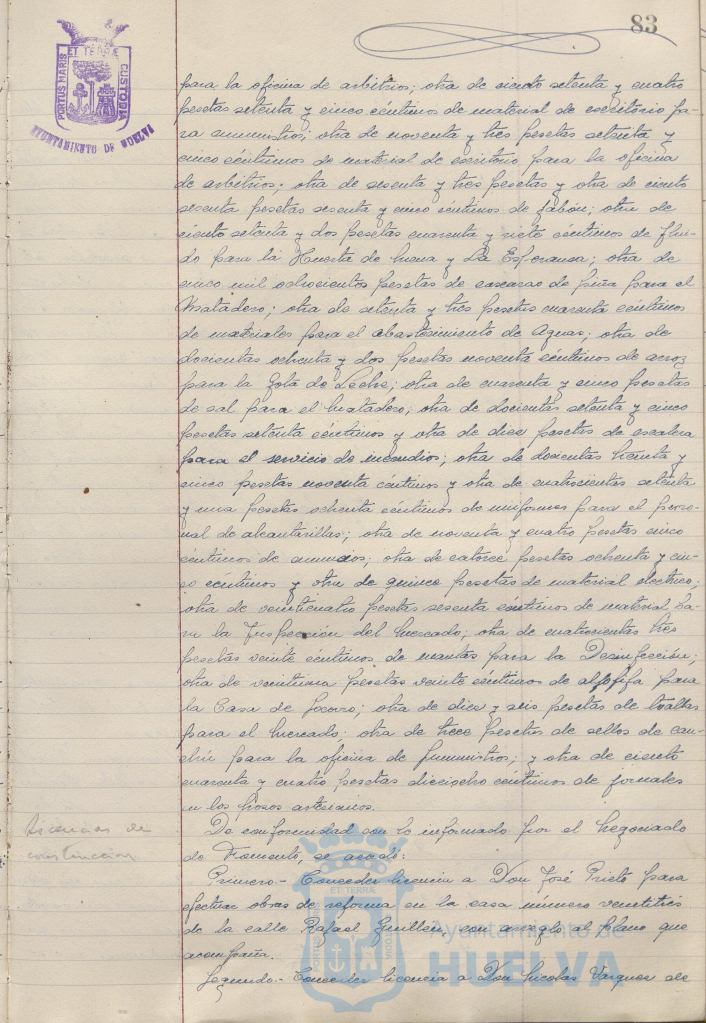 83
PORTUS MARIS ET TERRÆ CUSTODIA
AYUNTAMIENTO DE HUELVA
para la oficina de arbitrios; otra de ciento setenta y cuatro
pesetas setenta y cinco céntimos de material de escritorio pa-
ra suministros; otra de noventa y tres pesetas setenta y
cinco céntimos de material de escritorio para la oficina
de arbitrios; otra de sesenta y tres pesetas y otra de ciento
sesenta pesetas sesenta y cinco céntimos de jabón; otra de
ciento setenta y dos pesetas cuarenta y siete céntimos de flui-
do para la Huerta de Mena y La Esperanza; otra de
cinco mil ochocientos pesetas de cascaras de piña para el
Matadero; otra de setenta y tres pesetas cuarenta céntimos
de materiales para el abastecimiento de Aguas; otra de
docientas ochenta y dos pesetas noventa céntimos de arroz
para la Gota de Leche; otra de cuarenta y cinco pesetas
de sal para el Matadero; otra de docientas setenta y cinco
pesetas setenta céntimos y otra de diez pesetas de escalera
para el servicio de incendios; otra de doscientas treinta y
cinco pesetas noventa céntimos y otra de cuatrocientas setenta
y una pesetas ochenta céntimos de uniformes para el perso-
nal de alcantarillas; otra de noventa y cuatro pesetas cinco
céntimos de anuncios; otra de catorce pesetas ochenta y cin-
co céntimos y otra de quince pesetas de material electrico;
otra de veinticuatro pesetas sesenta céntimos de material pa-
ra la Inspección del Mercado; otra de cuatrocientas tres
pesetas veinte céntimos de mantas para la Desinfección;
otra de veintiuna pesetas veinte céntimos de para
la Casa de Socorro; otra de diez y seis pesetas de toallas
para el Mercado; otra de trece pesetas de sellos de cau-
chú para la oficina de Suministros; y otra de ciento
cuarenta y cuatro pesetas dieciocho céntimos de jornales
en los Pozos artesianos.
Licencias de
construccion
De conformidad con lo informado por el Negociado
de Fomento, se acordó:
Primero.- Conceder licencia a Don José Prieto para
efectuar obras de reforma en la casa número veintitres
de la calle Rafael Guillen, con arreglo al plano que
acompaña.
Segundo.- Conceder licencia a Don Nicolas Vazquez de
Ayuntamiento de
HUELVA